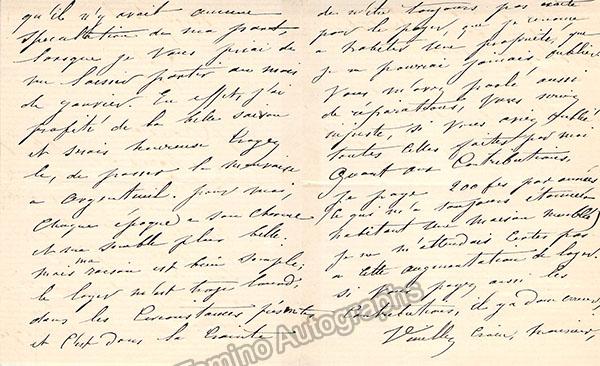 qu'il n'y avait aucune
spéculation de ma part,
lorsque je vous priai de
me laisser partir au mois
de janvier. En effet, j'ai
profité de la belle saison
et serais heureuse
de passer la mauvaise
a Argenteuil. pour moi,
chaque époque a son charme
et me semble plus belle;
mais ma raison est bien simple;
le loyer m'est trop lourd
dans les circonstances présentes
et c'est dans la crainte
de n'être toujours pas exacte
pour le payer, que je renonce
a habiter une propriété que
je ne pourrai jamais oublier
Vous m'avez parlé aussi
de réparations, vous seriez
injuste, si vous aviez oublié
toutes celles faites par moi
Quant aux Contributions,
je paye 200 frs par année
ce qui m'a toujours étonnée
habitant une maison meublée)
je ne m'attendais certes pas
a cette augmentation de loyer.
si vous payez aussi les
Contributions, il y a donc erreur,
Veuillez croire, Monsieur,
Tamino Autographs